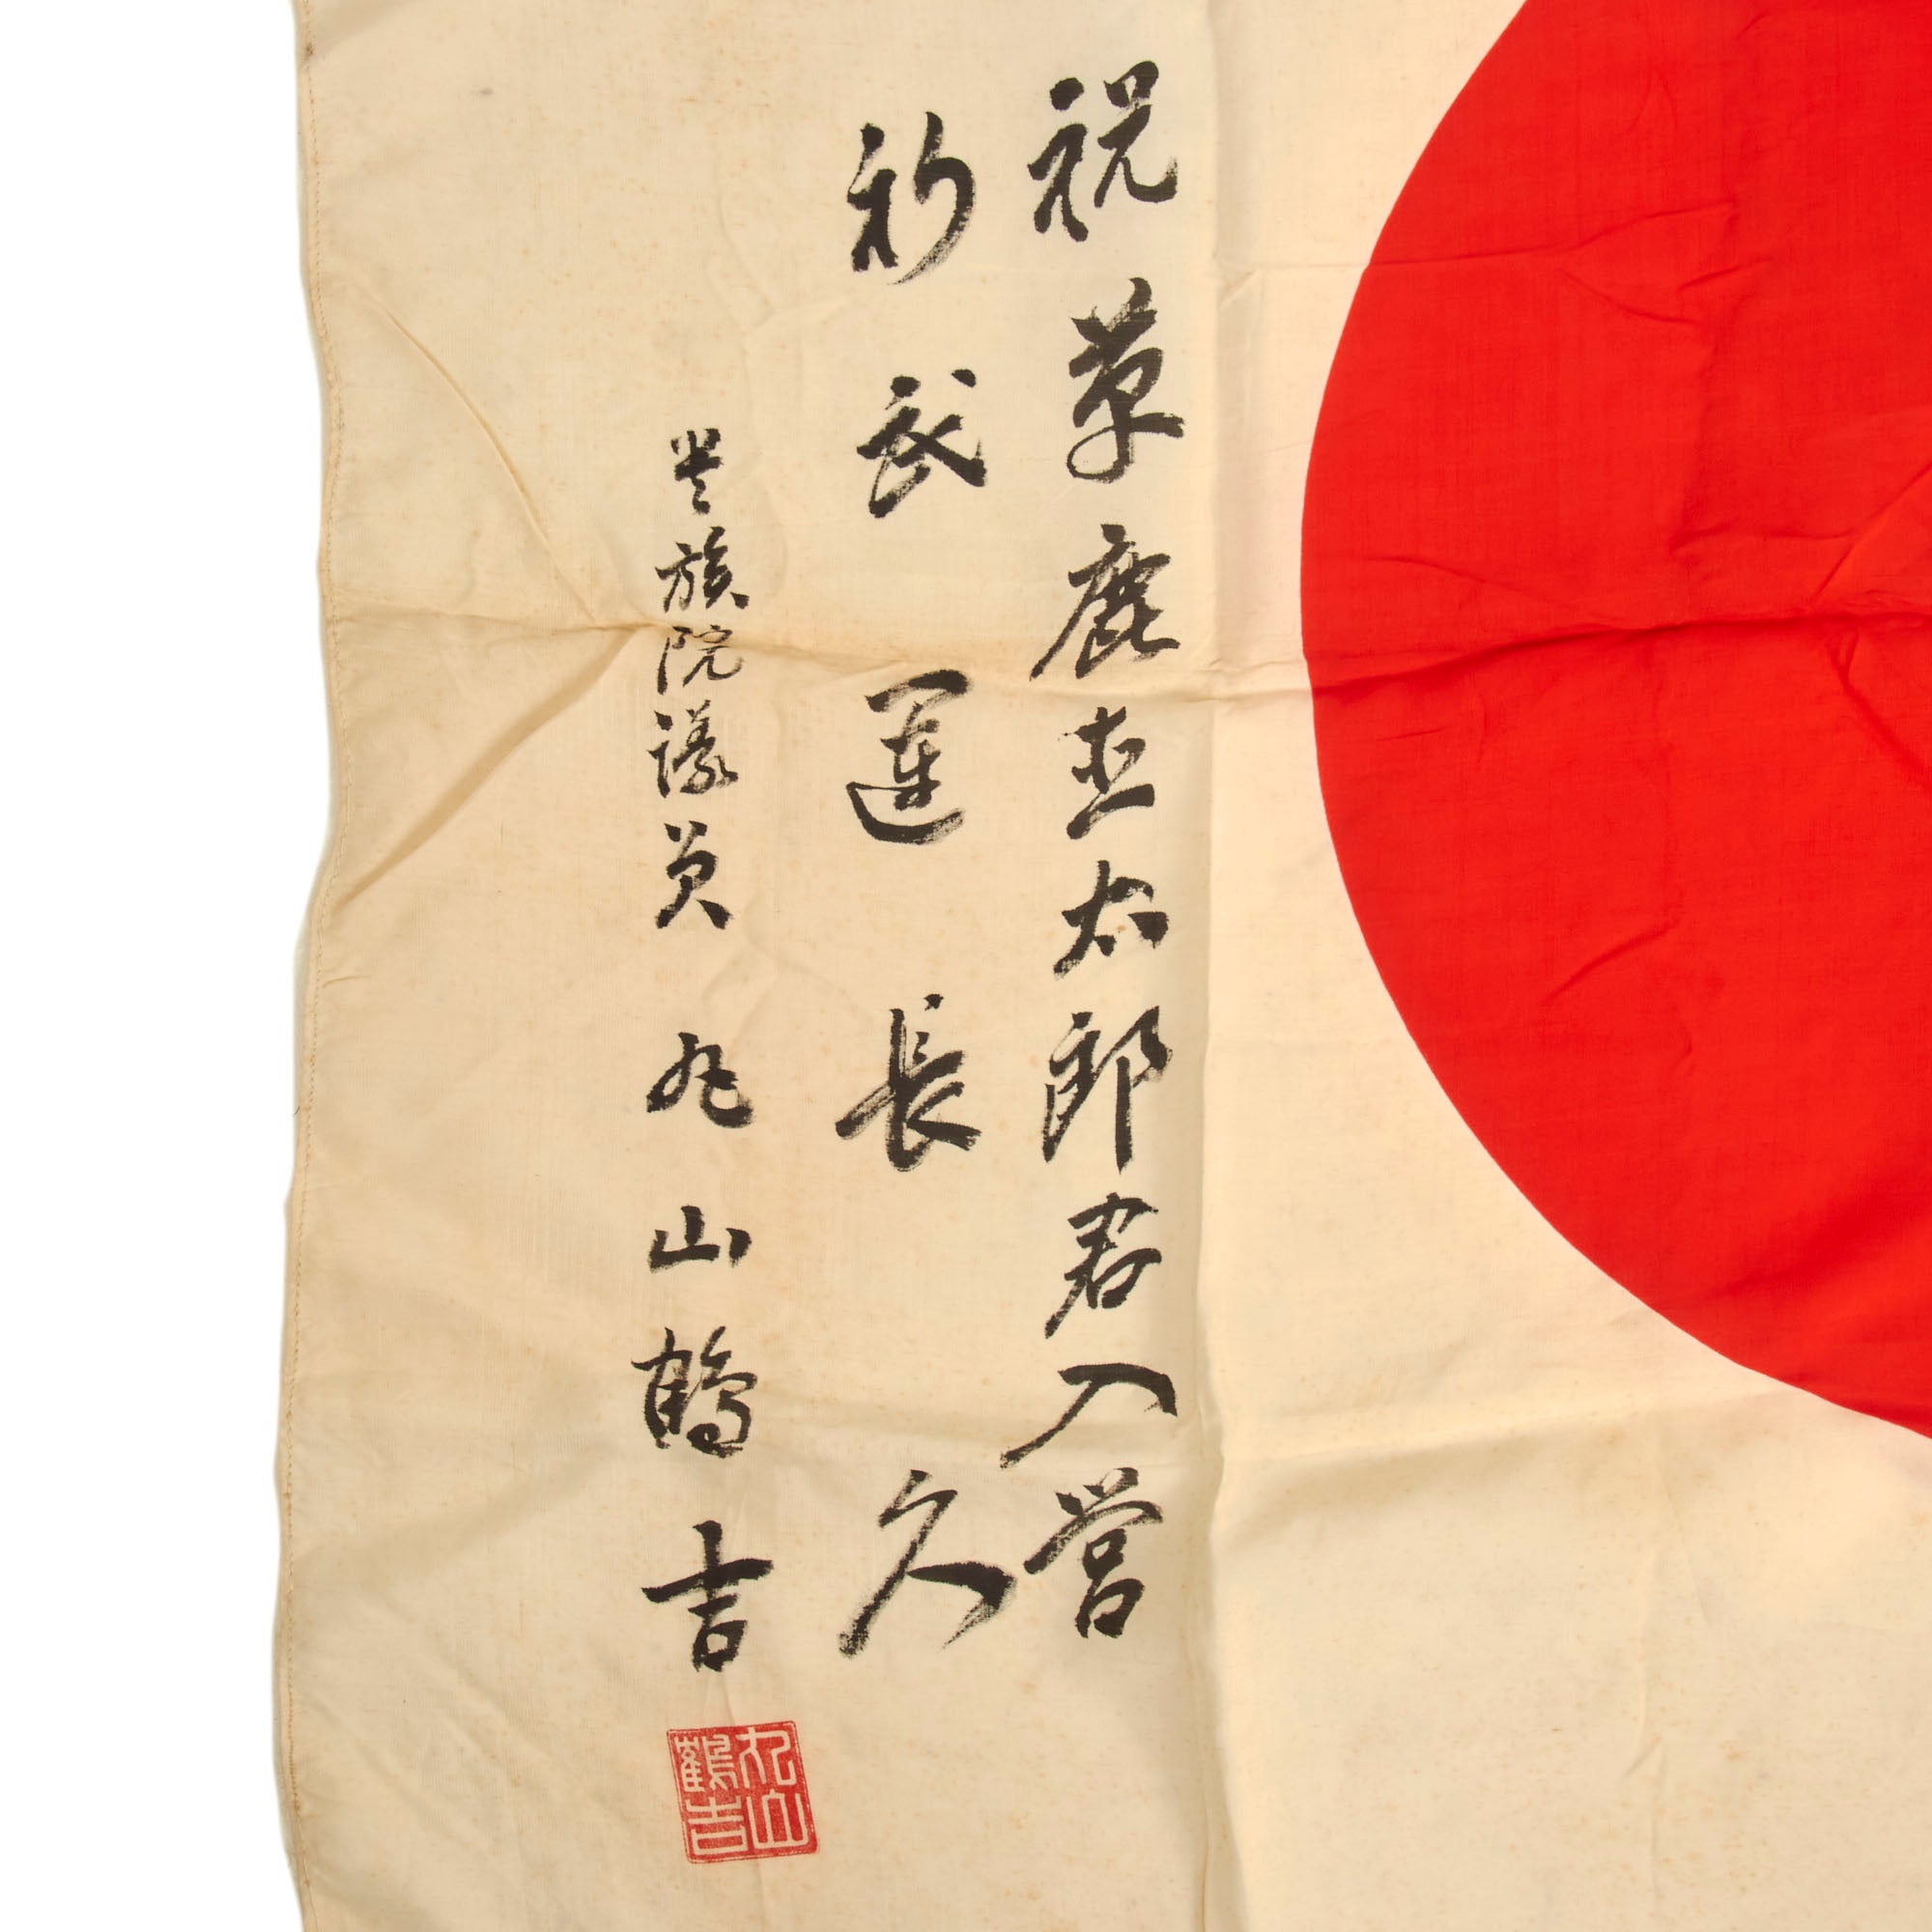 祝草鹿直太郎君入営
祈武運長久
貴族院議員 丸山鶴吉
丸山
鶴吉